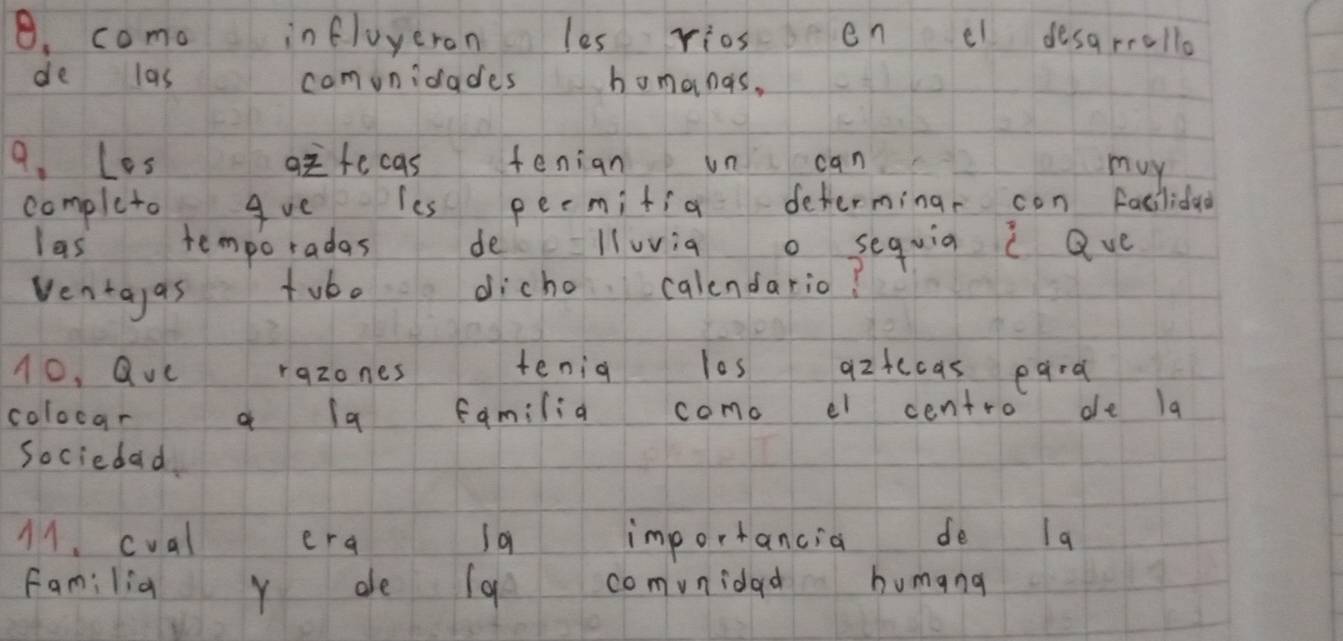 8. como influyeron los rios en el desarrollo
de las comunidades humanas.
9. Los aztecas tenian un can muy
completo que les permitia determinar con facilidad
las temporadas de lluvia o sequia ¿ Que
ventajas tubo dicho calendario?
10. Que razones tenia los aztecas para
colocar a la familia como el centro de la
sociedad.
11. cual era la importancia de la
familia y de la comunidad humana